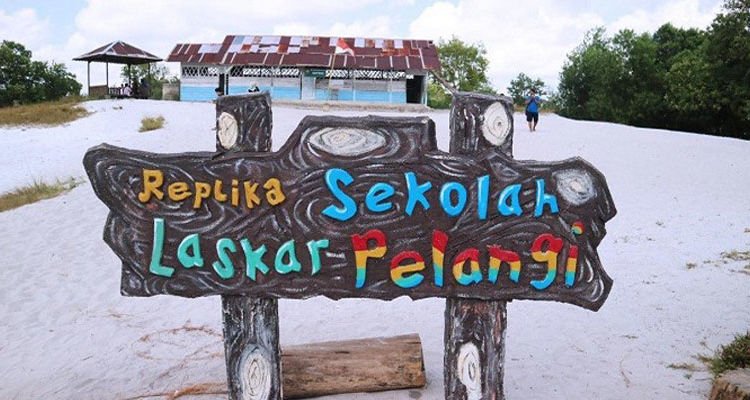 Replika Sekolah
Laskar Pelangi